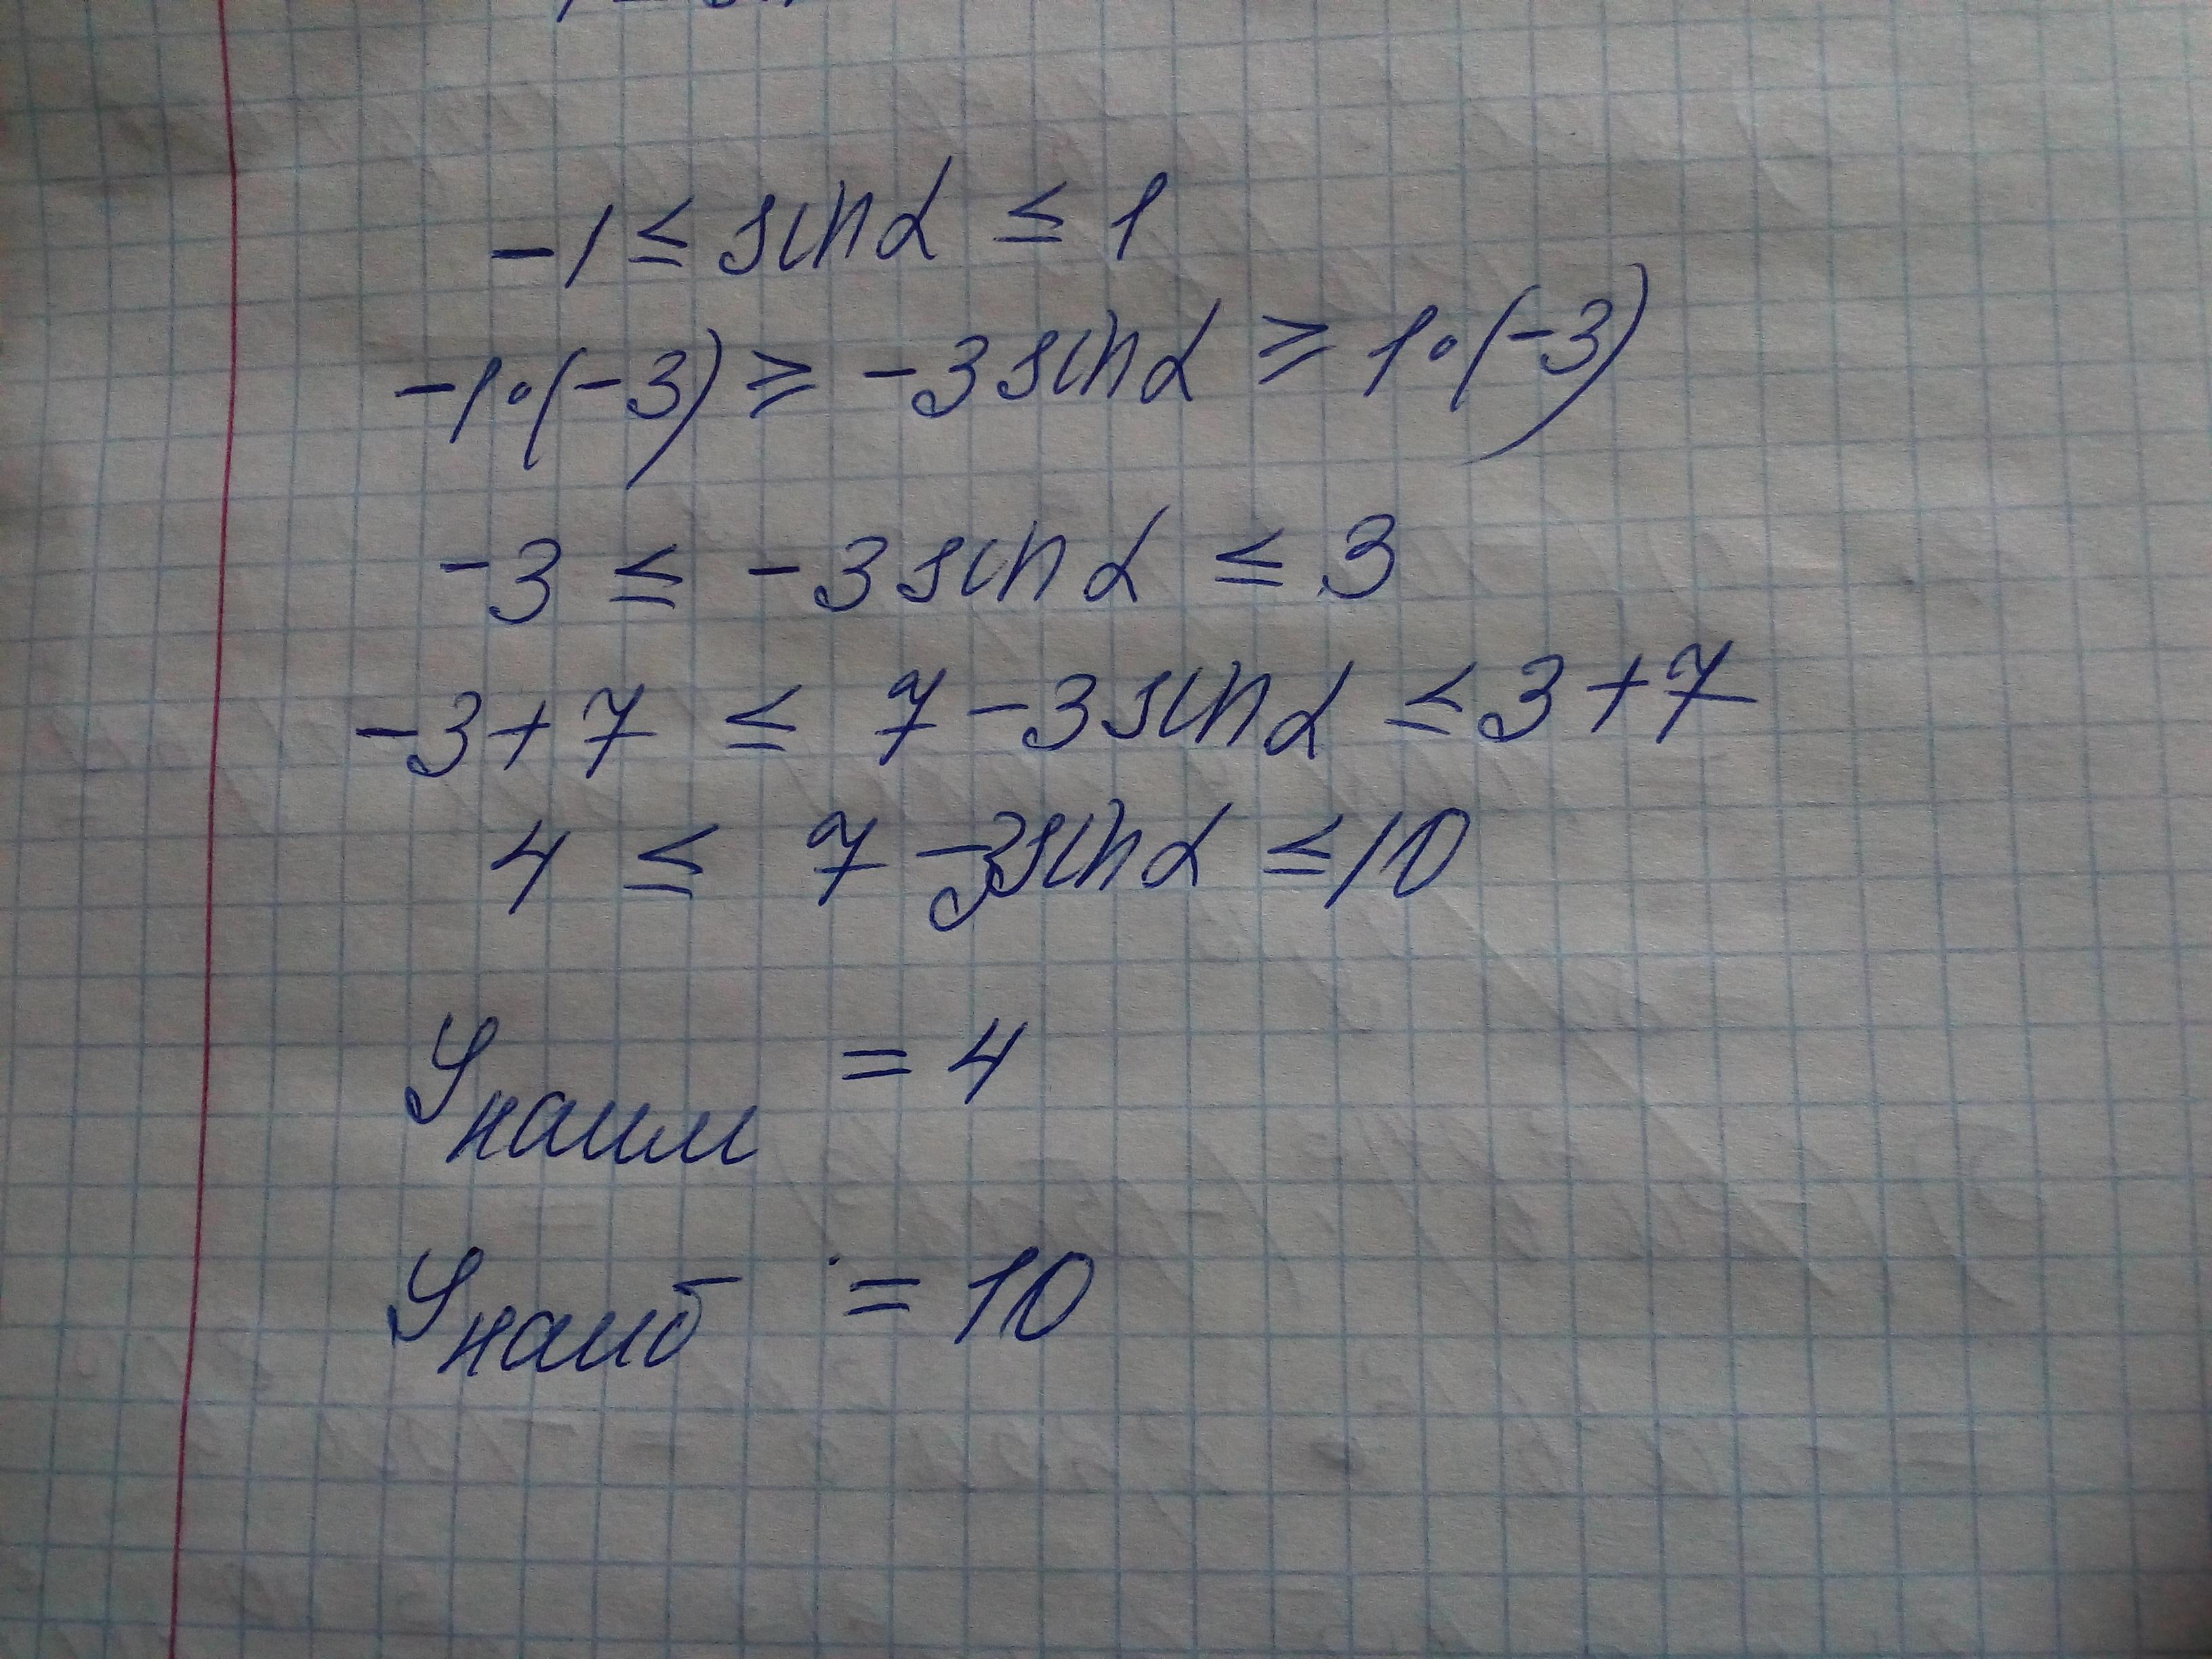 -1 ≤ sin α ≤ 1
-1·(-3) ≥ -3 sin α ≥ 1·(-3)
-3 ≤ -3 sin α ≤ 3
-3+7 ≤ 7-3 sin α ≤ 3+7
4 ≤ 7-3sin α ≤ 10
Yнаим = 4
Yнаиб = 10